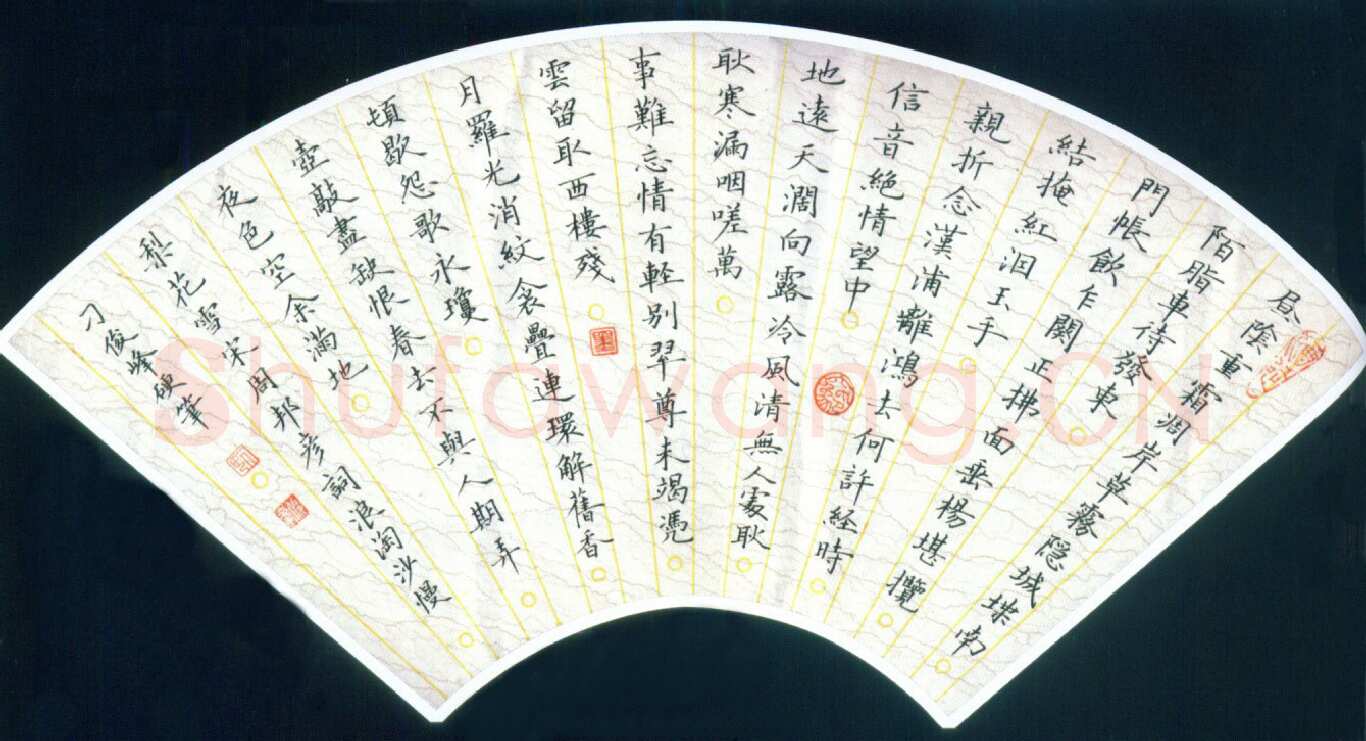 昼陰重霜凋岸草霧隐城堞南
陌脂車待發東
門帳飲乍闋正拂面垂楊堪攬
結掩紅泪玉手
親折念漢浦離鴻去何許経時
信音絶情望中
地遠天濶向露冷風清無人處耿
耿寒漏咽嗟萬
事難忘情有軽别翠尊未竭憑
雲留取西樓殘
月羅光消紋衾疊連環解舊香
頓歇怨歌永瓊
壺敲盡缺恨春去不與人期弄
夜色空余滿地
梨花雪宋周邦彦詞浪淘沙慢
刁俊峰硬筆
Shufawang.CN